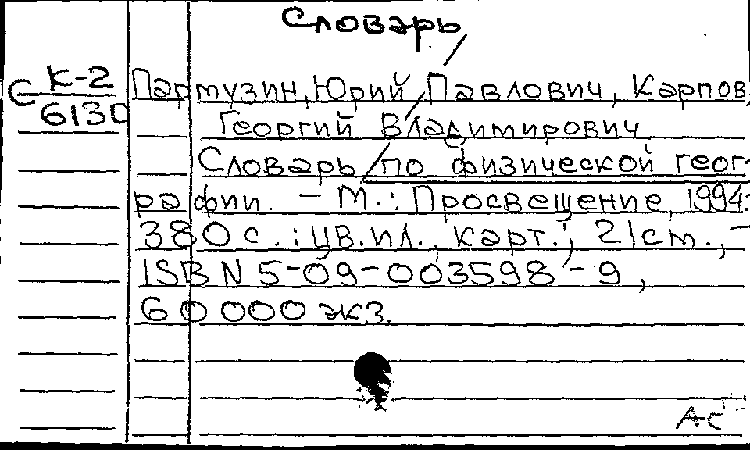 Словарь
С К-2
6130
Пармузин, Юрий Павлович, Карпов
Георгий Владимирович
Словарь по физической геог-
рафии. – М.: Просвещение, 1994.
380 с.: цв. ил., карт.; 21 см., –
ISBN 5-09-003598-9,
60 000 экз.
Ас